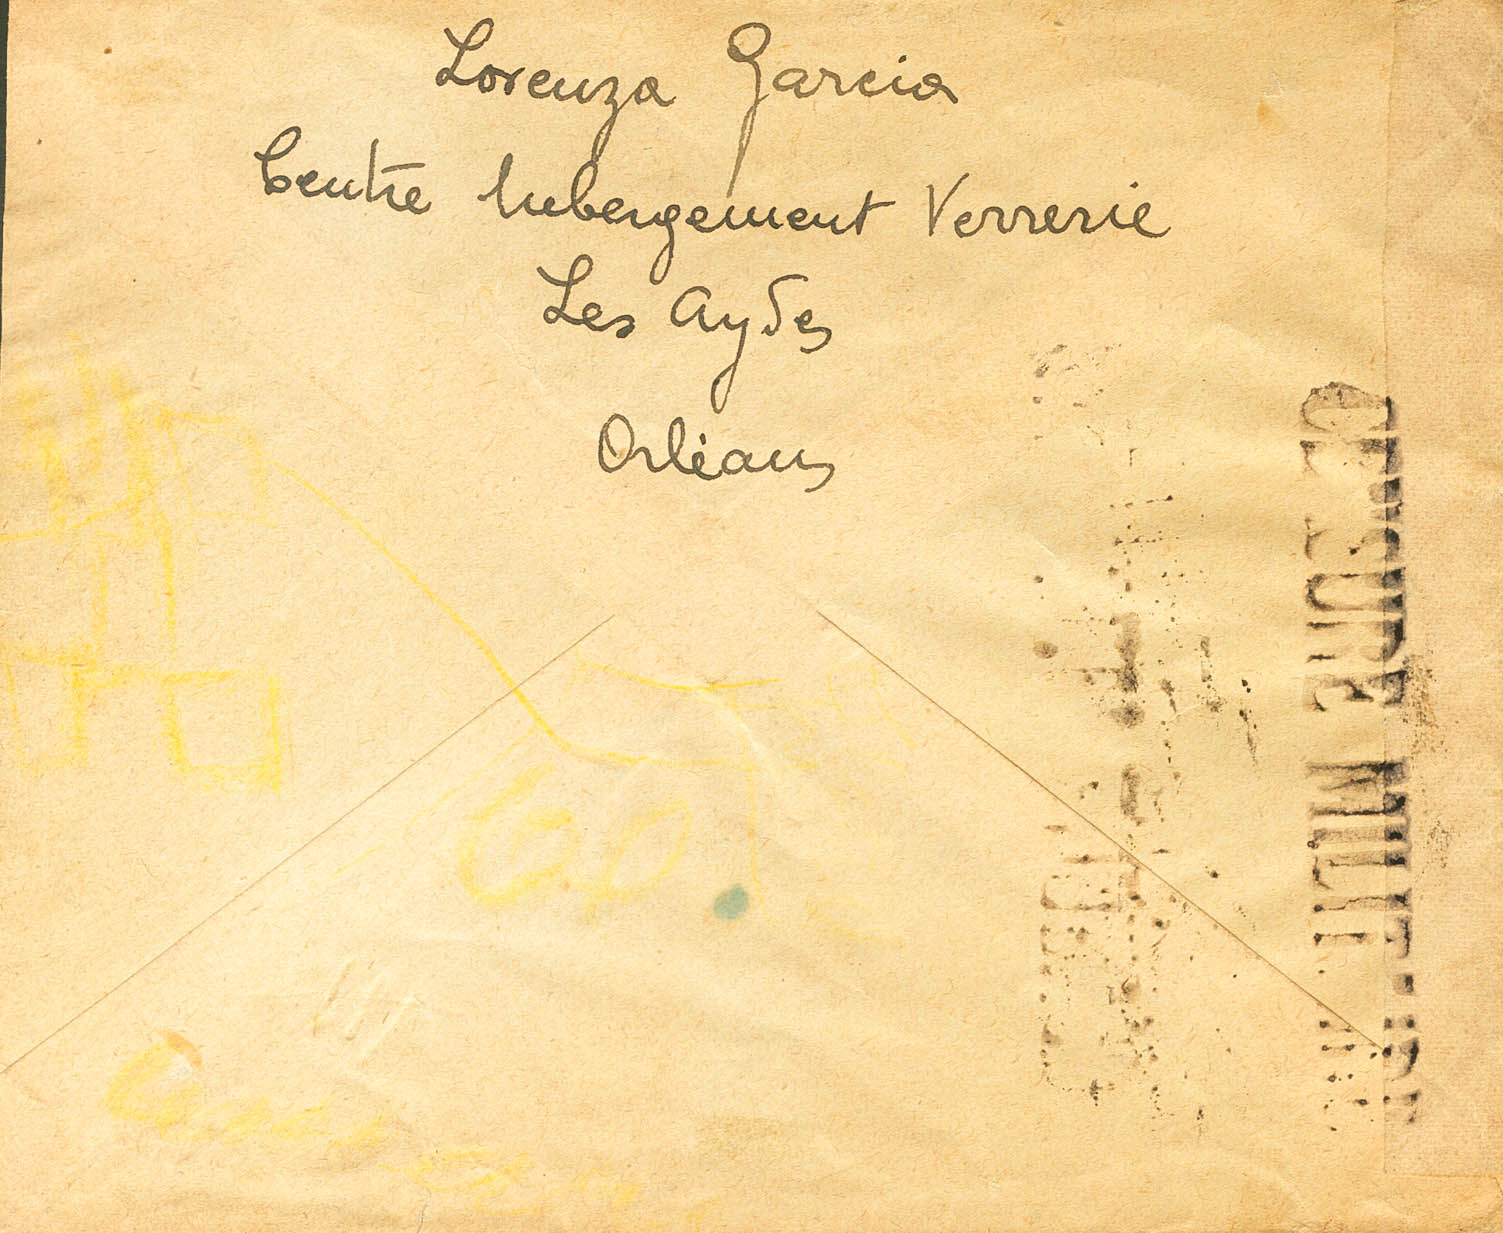 Lorenza Garcia
Centre hebergement Verrerie
Les Aydes
Orléans
CENSURE MILITAIRE